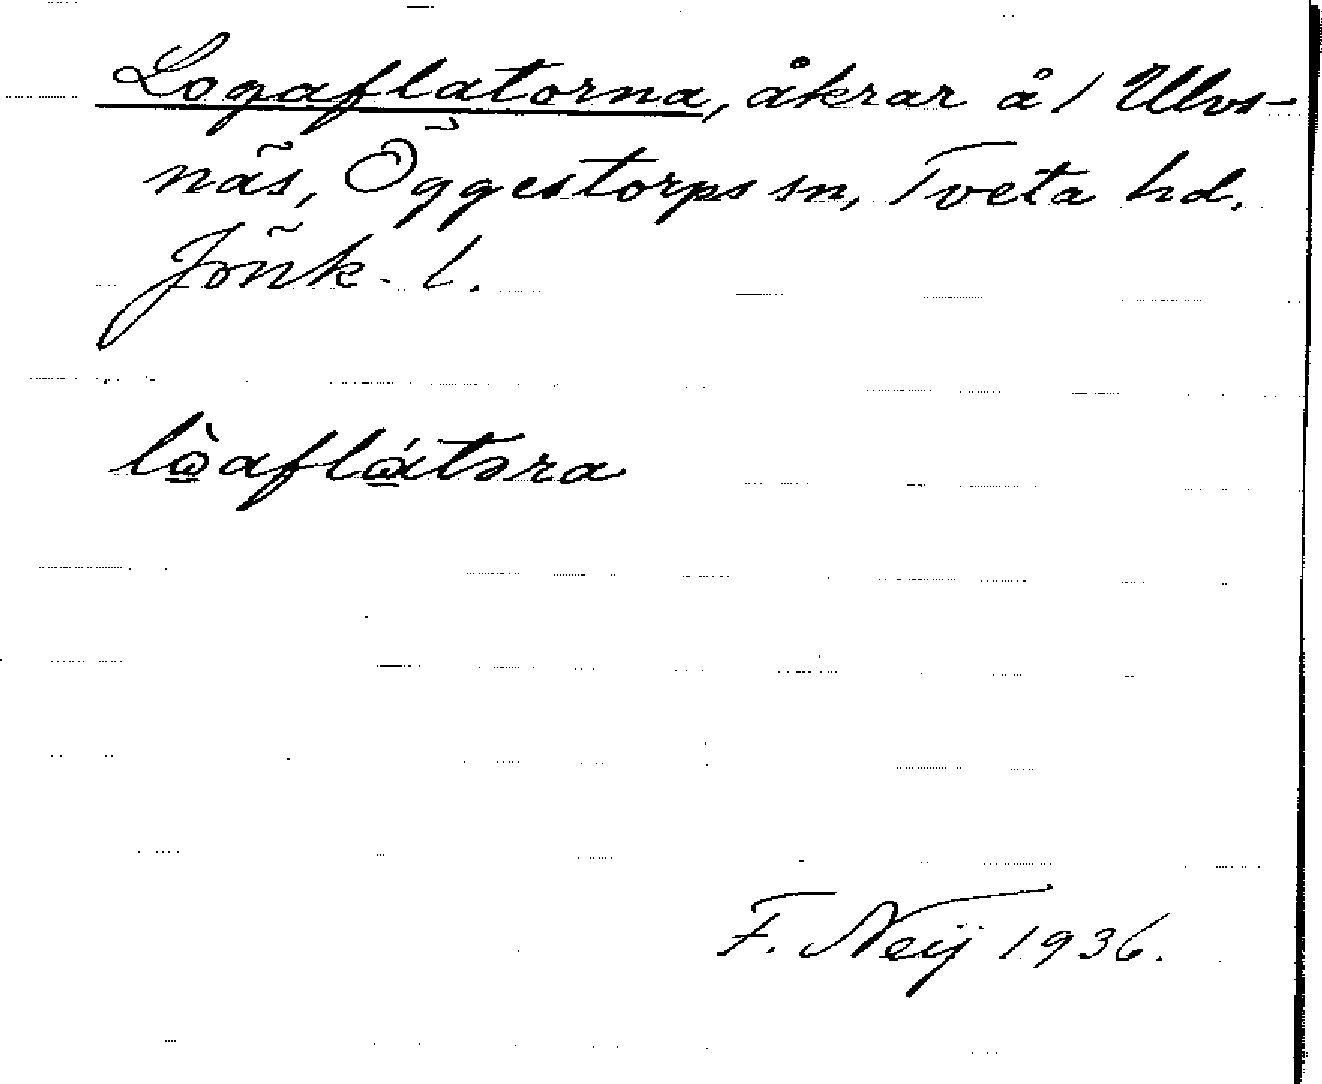 Logaflatorna, åkrar å 1 Ulvs-
näs, Öggestorps sn, Tveta hd.
Jönk. l.
lòaflátɔra
F. Neij 1936.